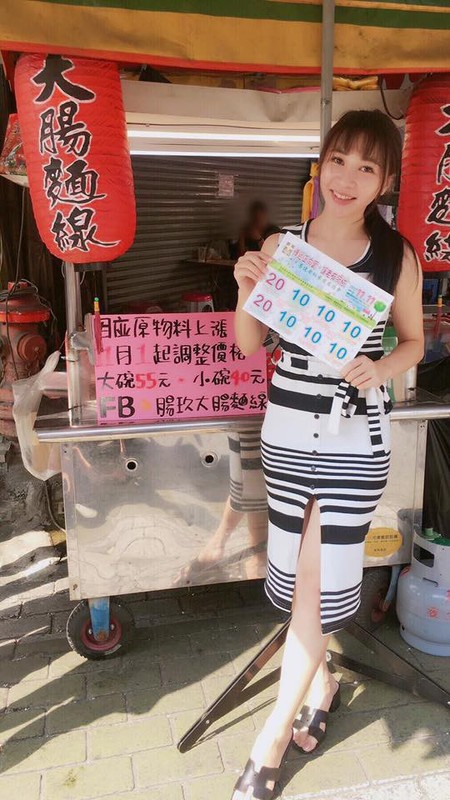 大腸麵線
因應原物料上漲
1月1起調整價格
大碗55元．小碗40元
FB 腸玖大腸麵線
11.11
20 10 10 10
20 10 10 10
腸麵線